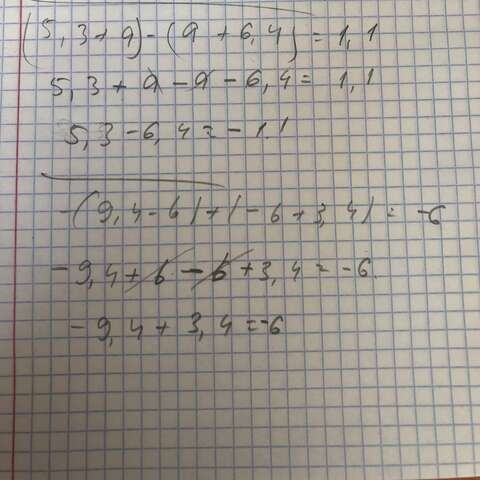 (5,3+a)-(a+6,4)=1,1
5,3+a-a-6,4=1,1
5,3-6,4=-1.1
-(9,4-b)+(-b+3,4)=-6
-9,4+b-b+3,4=-6.
-9,4+3,4=-6